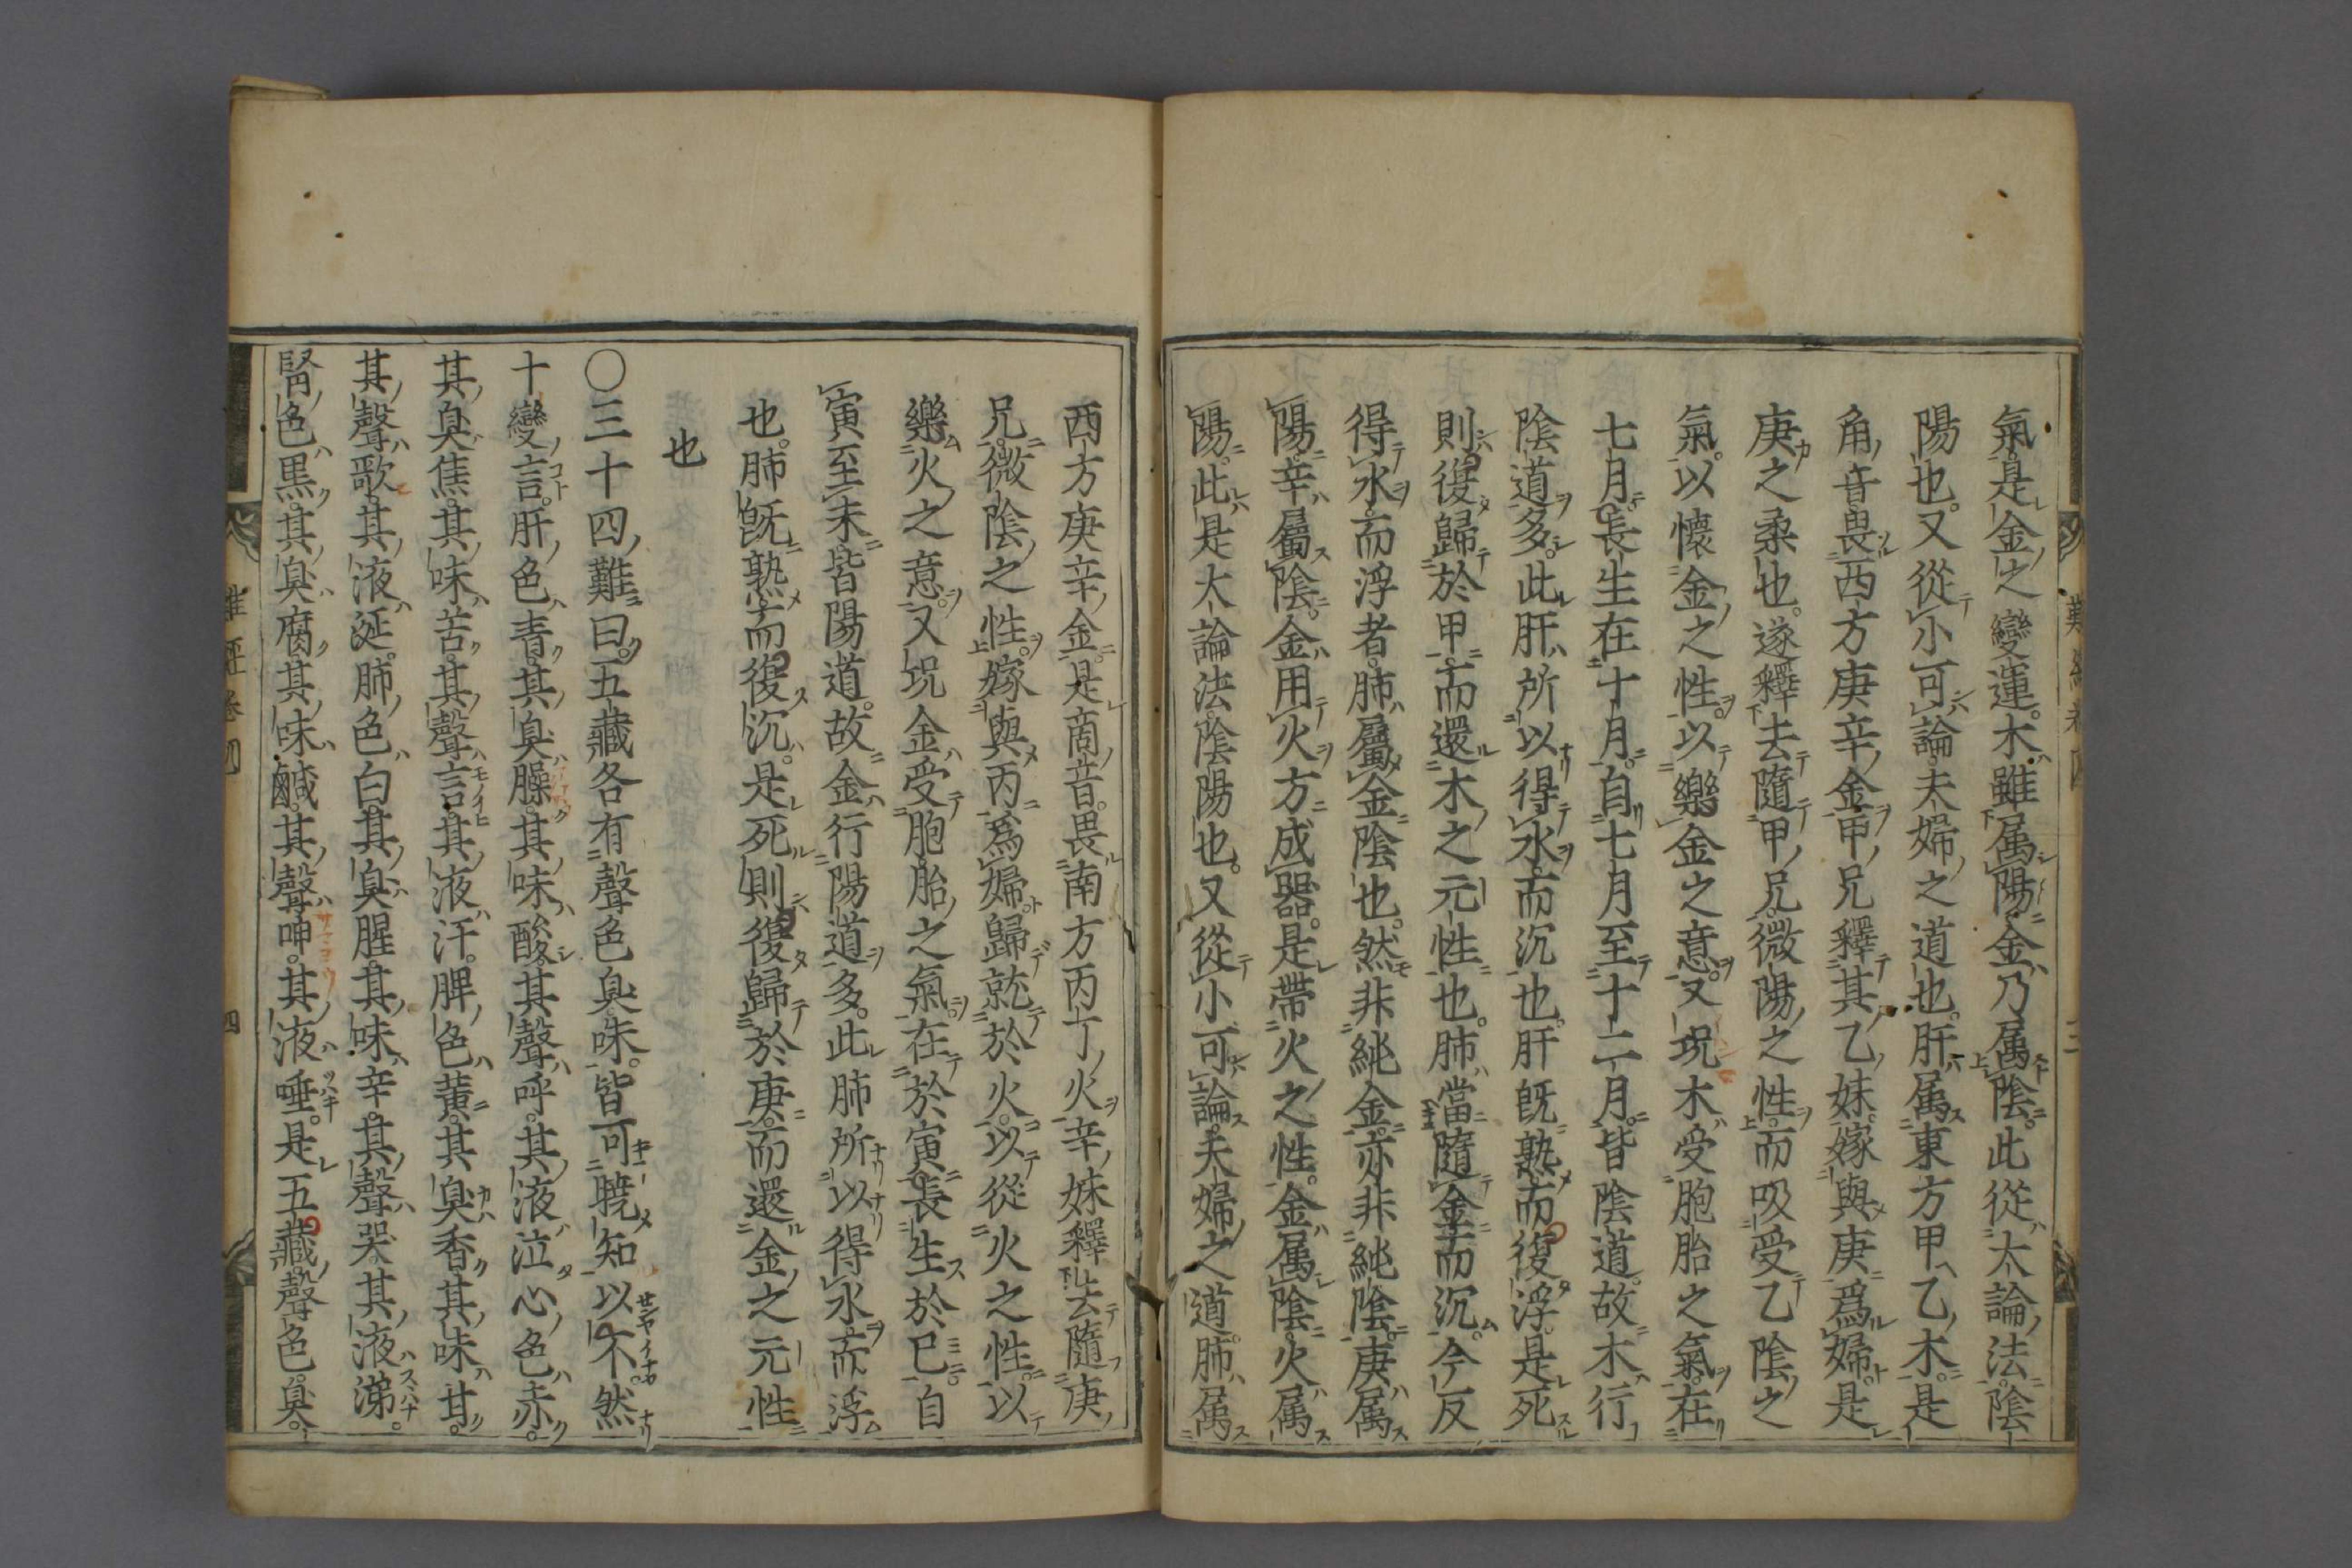 氣是金之變運。木雖属陽金乃属陰。此從大論法。陰
陽也。又從小可論。夫婦之道也。肝属東方甲乙木。是
角音畏西方庚辛金。甲兄釋其乙妹。嫁與庚爲婦。是
庚之柔也。遂釋去隨甲兄。微陽之性而吸受乙陰之
氣。以懷金之性。以樂金之意。又况木受胞胎之氣。在
七月。長生在十月。自七月至十二月。皆陰道。故木行
陰道多。此肝所以得水而沉也。肝既熟。而復浮。是死
則復歸於甲。而還木之元性也。肺當隨金而沉。今反
得水而浮者。肺屬金陰也。然非純金。亦非純陰。庚属
陽。辛屬陰。金用火方成器。是帶火之性。金属陰。火属
陽。此是大論法。陰陽也。又從小可論。夫婦之道。肺属
難經卷四
三
西方庚辛金。是商音。畏南方丙丁火。辛妹釋去隨庚
兄。微陰之性。嫁與丙爲婦。歸就於火。以從火之性。以
樂火之意。又况金受胞胎之氣。在於寅。長生於巳。自
寅至未。皆陽道。故金行陽道多。此肺所以得水而浮
也。肺既熟。而復沉。是死則復歸於庚。而還金之元性
也
〇三十四難曰。五藏各有聲色臭味。皆可曉知以不。然
十變言。肝色青。其臭臊。其味酸。其聲呼。其液泣。心色赤。
其臭焦。其味苦。其聲言。其液汗。脾色黃。其臭香。其味甘。
其聲歌。其液涎。肺色白。其臭腥。其味辛。其聲哭。其液涕。
腎色黒。其臭腐。其味鹹。其聲呻。其液唾。是五藏聲色臭。
難經卷四
四